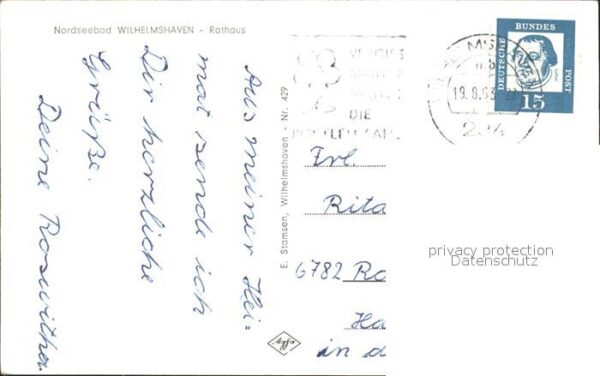 Nordseebad WILHELMSHAVEN - Rathaus
Aus meiner Hei-
mat sende ich
Dir herzliche
Grüße.
Deine Roswitha.
E. Stamsen, Wilhelmshaven - Nr. 429
VERGISS
DIE
DEUTSCHE
BUNDES
POST
15
19.8.63
Frl.
Rita
6782 Ro
Ha
in d
privacy protection
Datenschutz